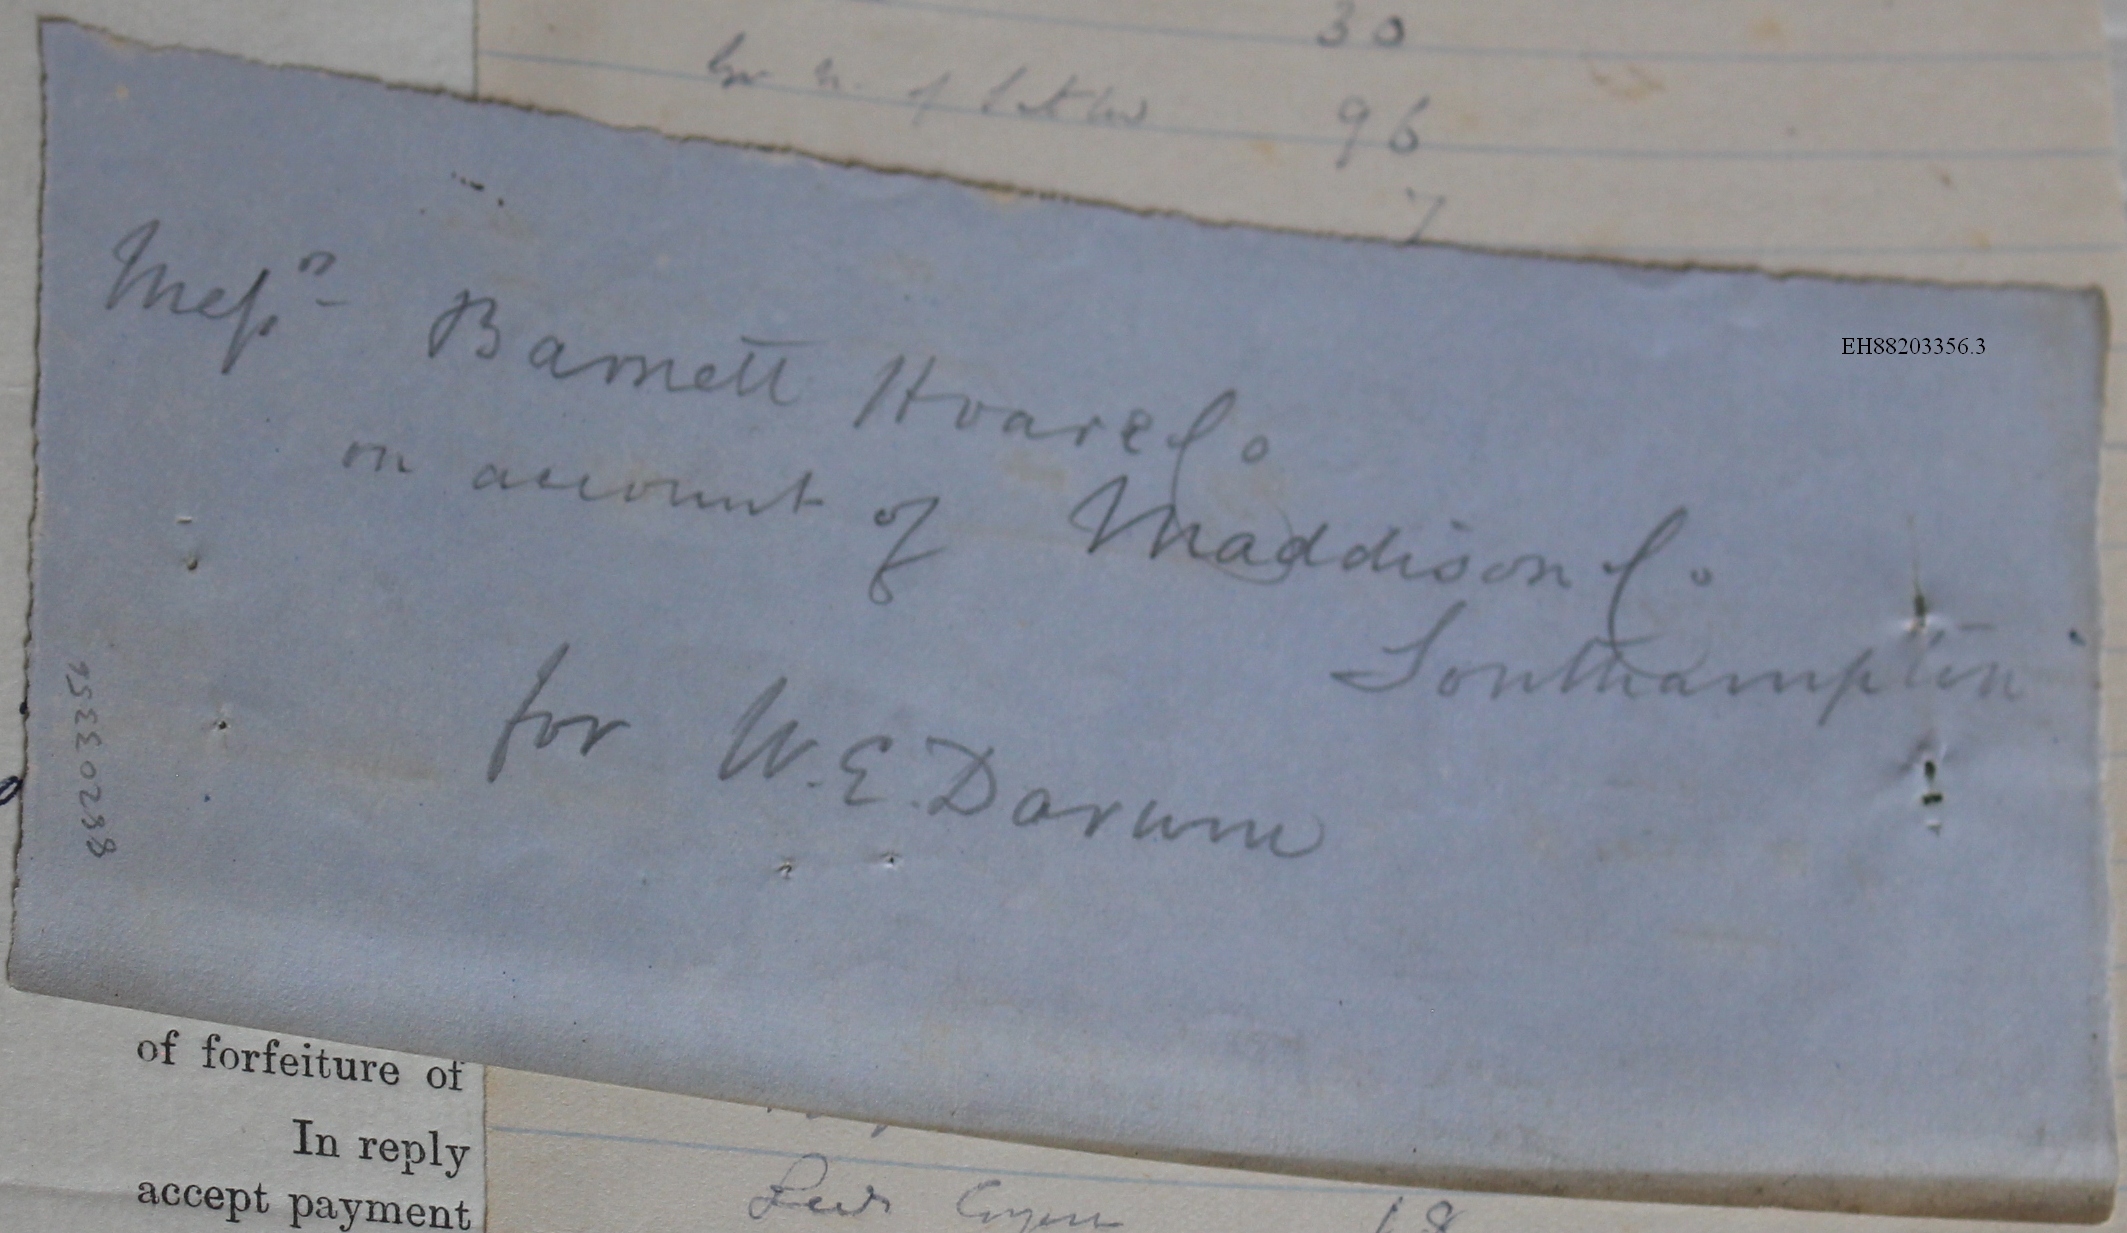 30
96
7
Messrs Barnett Hoare Co
EH88203356.3
on account of Maddison Co
Southampton
for W. E. Darwin
88203356
of forfeiture of
In reply
accept payment
18